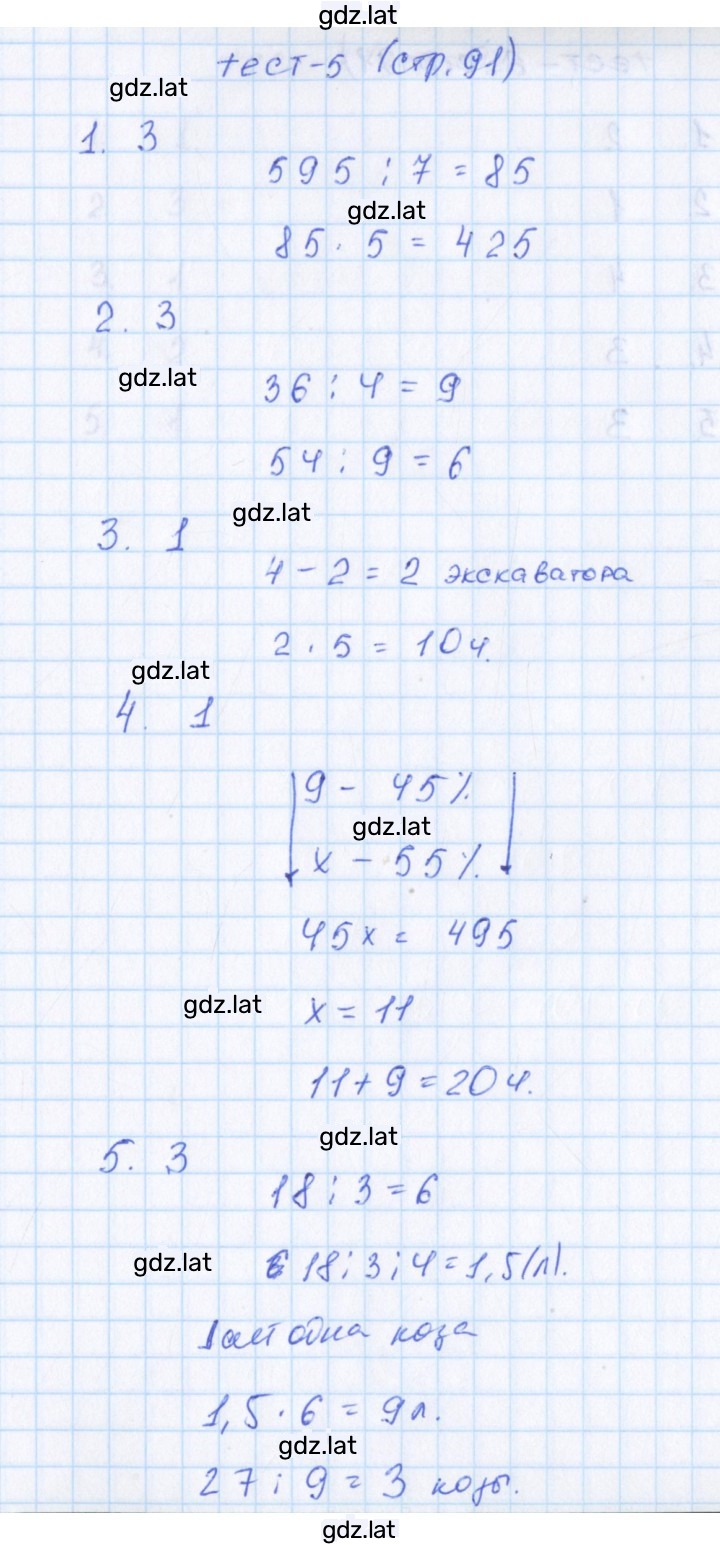 gdz.lat
тест-5 (стр. 91)
gdz.lat
1. 3
595 : 7 = 85
gdz.lat
85 · 5 = 425
2. 3
gdz.lat
36 : 4 = 9
54 : 9 = 6
gdz.lat
3. 1
4 - 2 = 2 экскаватора
2 · 5 = 10 ч.
gdz.lat
4. 1
9 - 45%
gdz.lat
x - 55%
45x = 495
gdz.lat
x = 11
11 + 9 = 20 ч.
gdz.lat
5. 3
18 : 3 = 6
gdz.lat
18 : 3 : 4 = 1,5 (л).
одна коза
1,5 · 6 = 9 л.
gdz.lat
27 : 9 = 3 козы.
gdz.lat